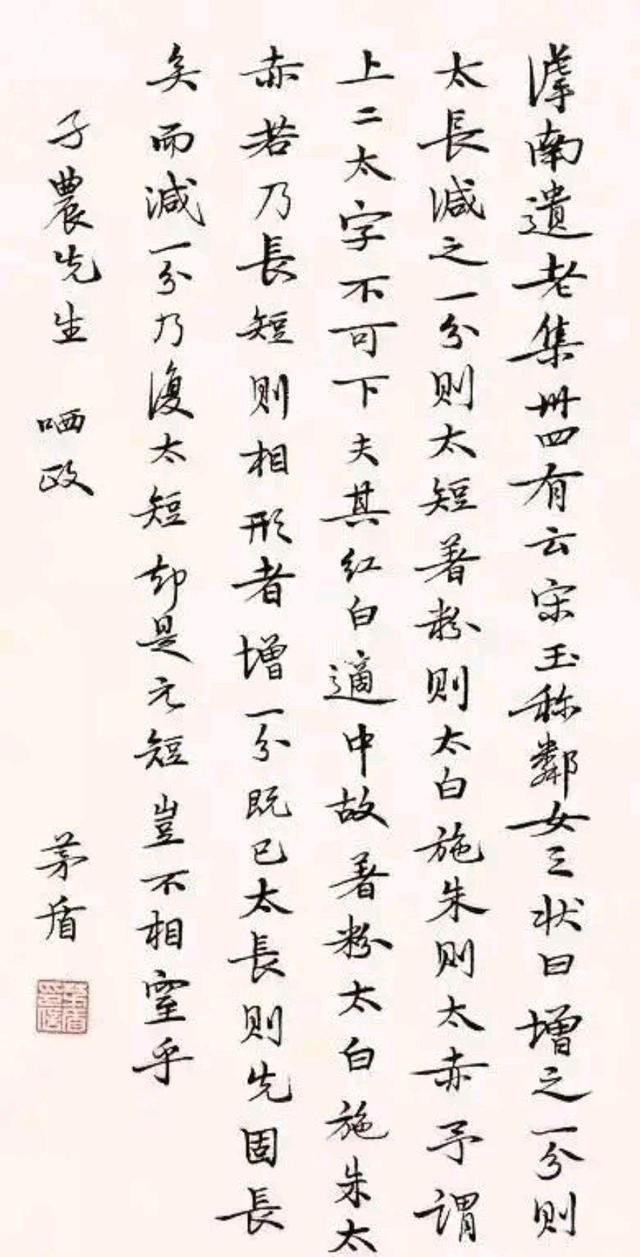 滹南遺老集卅四有云宋玉称鄰女之状曰增之一分則
太長减之一分則太短著粉則太白施朱則太赤予謂
上二太字不可下夫其红白適中故著粉太白施朱太
赤若乃長短則相形者增一分既已太長則先固長
矣而减一分乃復太短却是元短豈不相窒乎
子農先生 哂政
茅盾
茅盾